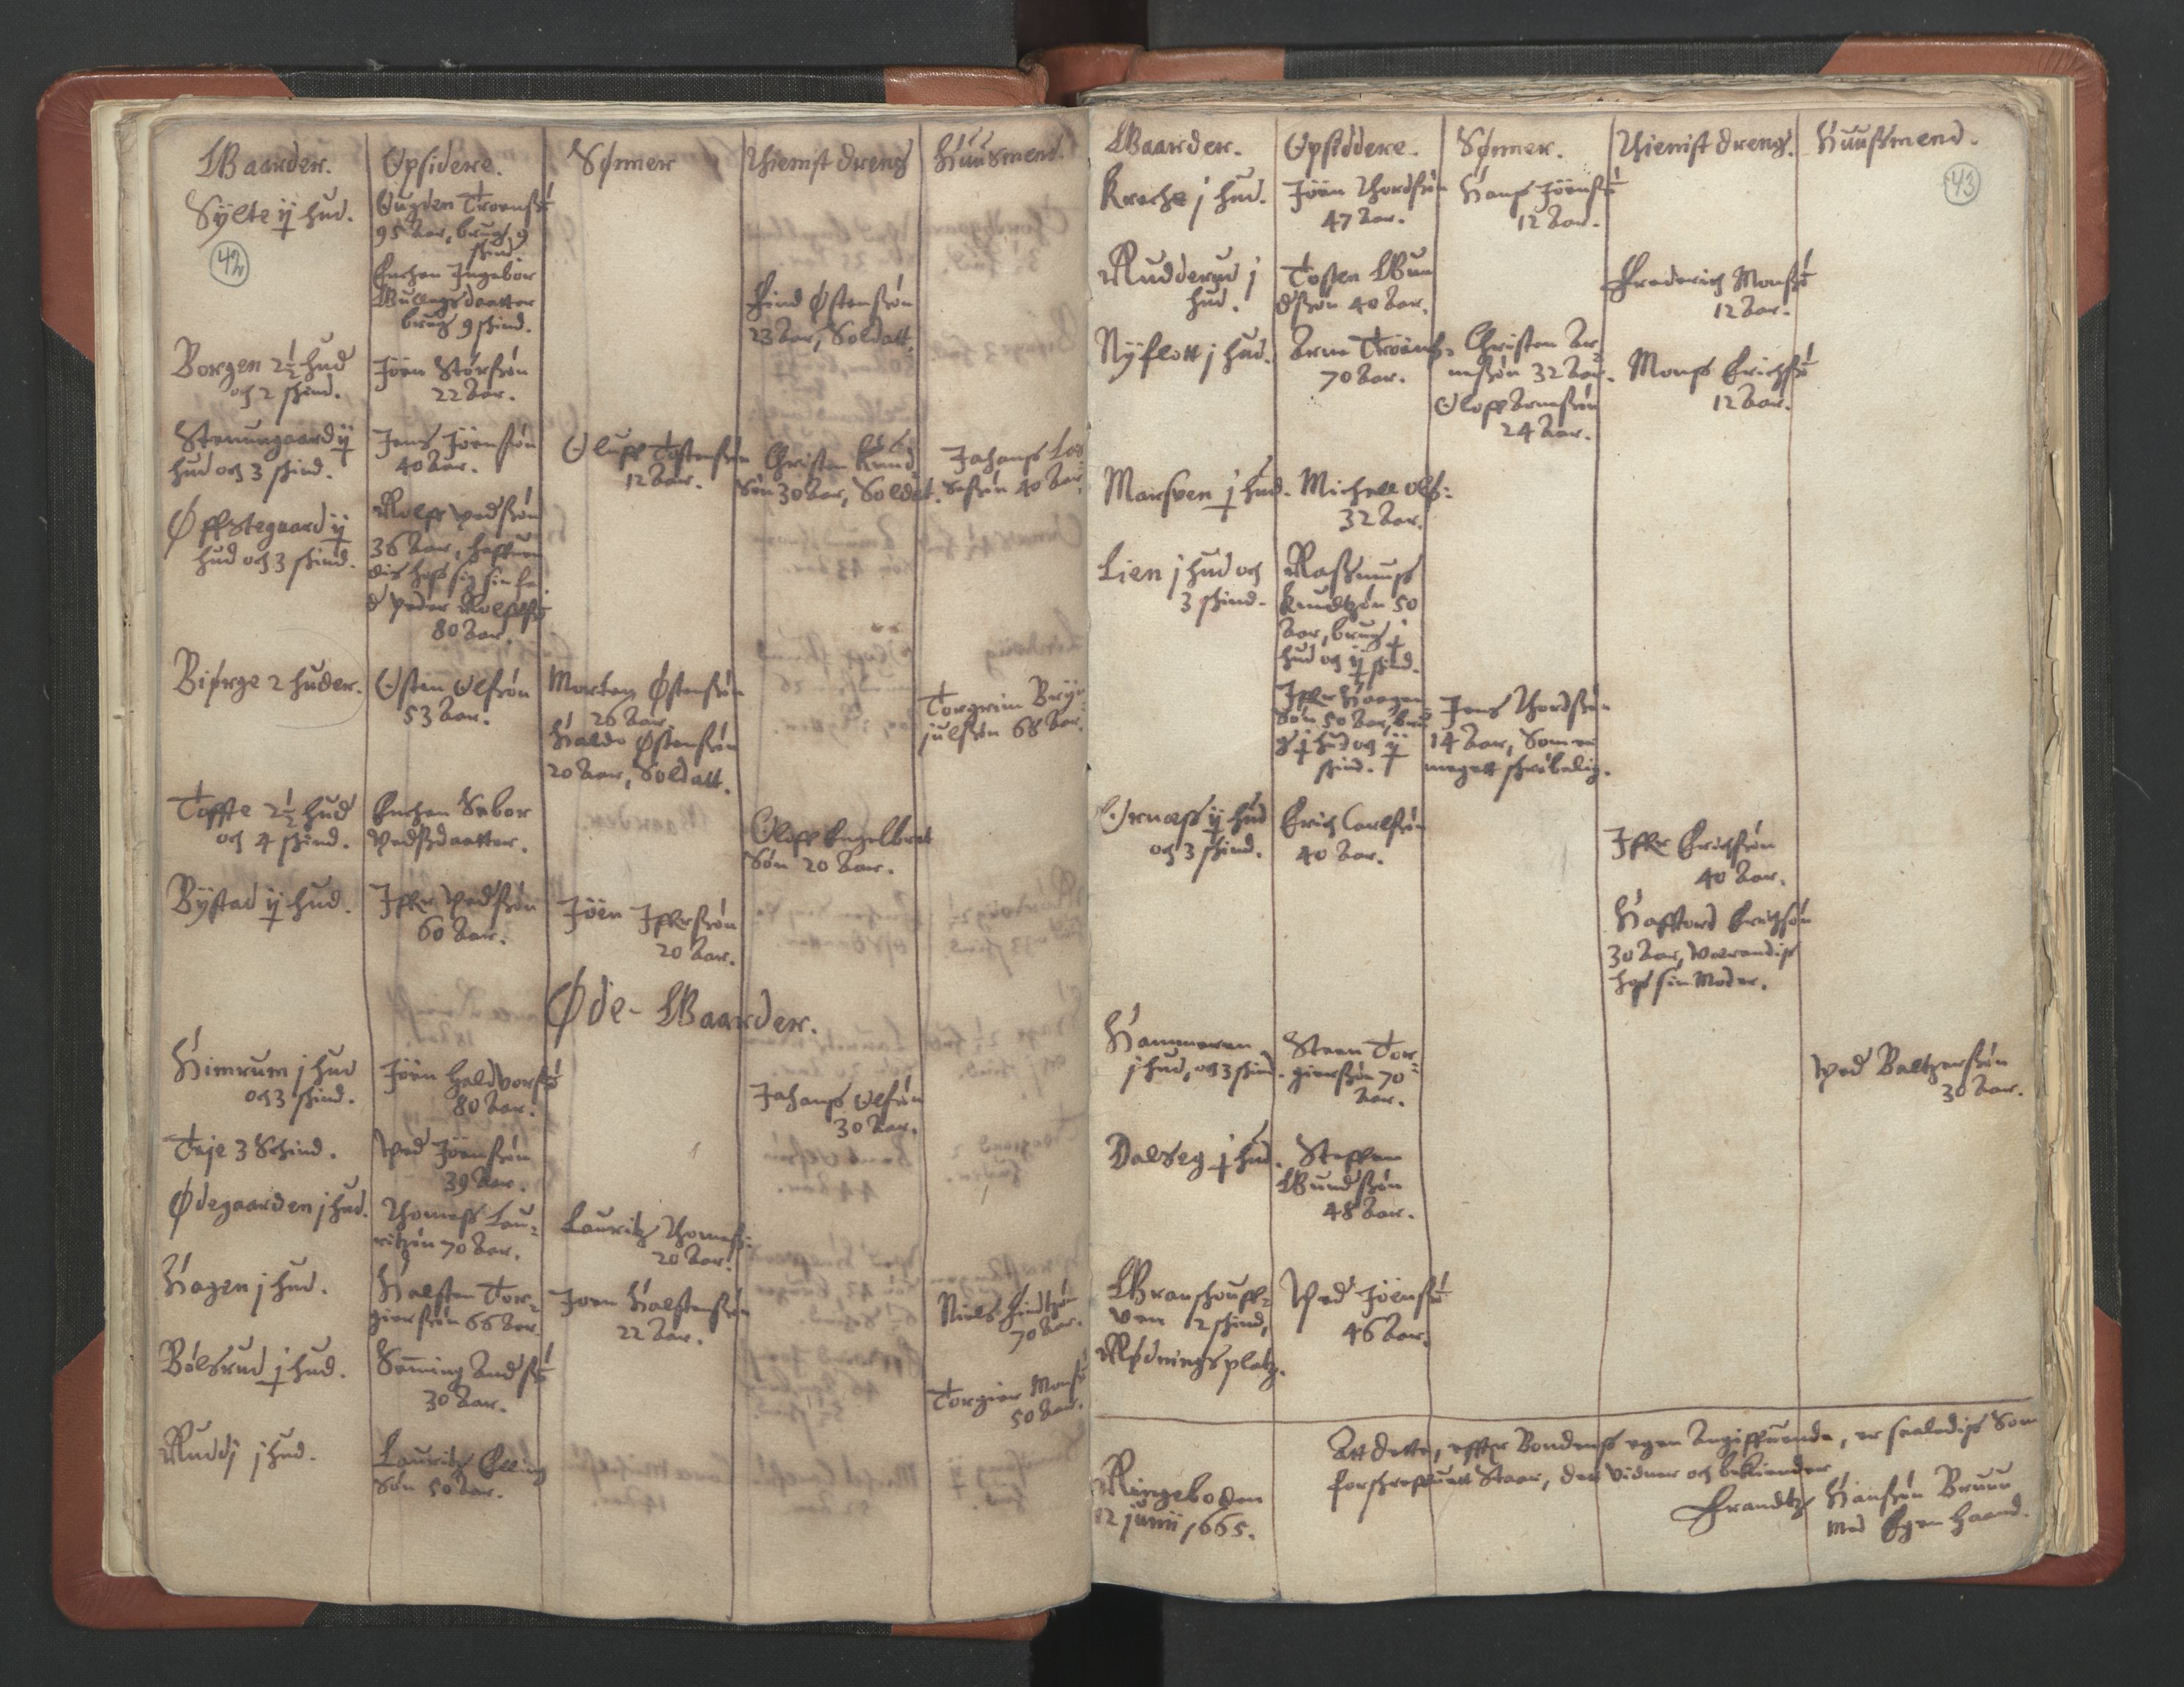 Gaarder. Opsidere. Sønner Thienist dreng Huusmend.
Sylte ij hud. Augden Troensø
95 Aar, brug 9
skind
42
Enchen Ingebor
Gullagsdaatter
brug 9 skind.
Find Østensøn
23 Aar, Soldatt.
Borgen 2½ hud
och 2 skind.
Jöen Størsøn
22 Aar.
Stenumgaard ij
hud och 3 skind.
Jens Jöensøn
40 Aar.
Oluff Tostensøn
12 Aar.
Christen Knud
Søn 30 Aar, Soldat.
Johanss
40 Aar.
Øffstegaard ij
hud och 3 skind.
Rolff Pedsøn
36 Aar, haffuer
hoss sig sin fa-
d Peder Rolffsø
80 Aar.
Biørge 2 huder.
Østen Olsøn
53 Aar.
Morten Østensøn
26 Aar.
Haldo Østensøn
20 Aar, Soldatt.
Torgrim Bryn
julsøn 68 Aar.
Toffte 2½ hud
och 4 skind.
Enchen Sebor
Pedsdaatter.
Oloff Engelbret
Søn 20 Aar.
Bystad ij hud.
Iffer Pedsøn
60 Aar.
Jöen Iffersøn
20 Aar.
Øde-Gaarder.
Himrum j hud
och 3 skind.
Jöen Haldvorsø
80 Aar.
Johanss Olsøn
30 Aar.
Teje 3 Schind.
Ped Jöensøn
39 Aar.
Ødegaarden j hud.
Thomass Lau-
ritzøn 70 Aar.
Lauritz Thomess:
20 Aar.
Hagen j hud.
Halsten Tor-
giersøn 66 Aar.
Joen Halstensøn
22 Aar.
Niels Findtzøn
70 Aar.
Bølsrud j hud.
Seming Andsø
30 Aar.
Torgier Monsø
50 Aar.
Rudj j hud.
Lauritz Elling
Søn 50 Aar.
Gaarder. Opsiddere. Sønner. Thienist dreng. Huussmend.
43
Kreche j hud.
Jöen Thordsøn
47 Aar.
Hanss Jöensø
12 Aar.
Rudderud j
hud.
Tosten Gun
dsøn 40 Aar.
Frederich Monsø
12 Aar.
Nyflott j hud.
Arne Troens:
70 Aar.
Christen Ar
nesøn 32 Aar.
Oloff Arnesøn
24 Aar.
Monss Erichsø
12 Aar.
Marsven j hud.
Michell Olss:
32 Aar.
Lien j hud och
3 skind.
Rassmuss
Knudtzøn 50
Aar, brug j
hud och ij skid.
Iffer Haagen
Søn 50 Aar, bru
g j hud och ij
skind.
Jens Thordsøn
14 Aar, Som er
megett skrøbelig.
Ornæss ij hud
och 3 skind.
Erich Carlsøn
40 Aar.
Iffer Erichsøn
40 Aar.
Haffvord Erichsøn
30 Aar, Værendiss
hos sin Moder.
Hammeren
j hud, och 3 skind.
Steen Tor-
giersøn 70
Aar.
Ped Baltzersøn
30 Aar.
Dalseg j hud.
Steffen
Gundsøn
48 Aar.
Granshouff-
ven 2 skind,
Rødningsplatz.
Ped Jöensø
46 Aar.
Att dette, effter Bondens egen Angiffvende, er saaledis Som
forschreffuett Staar, det Vidner och bekiender
Ringeboen
12 junii 1665.
Frandtz Hansøn Bruun
Med Egen Haand.